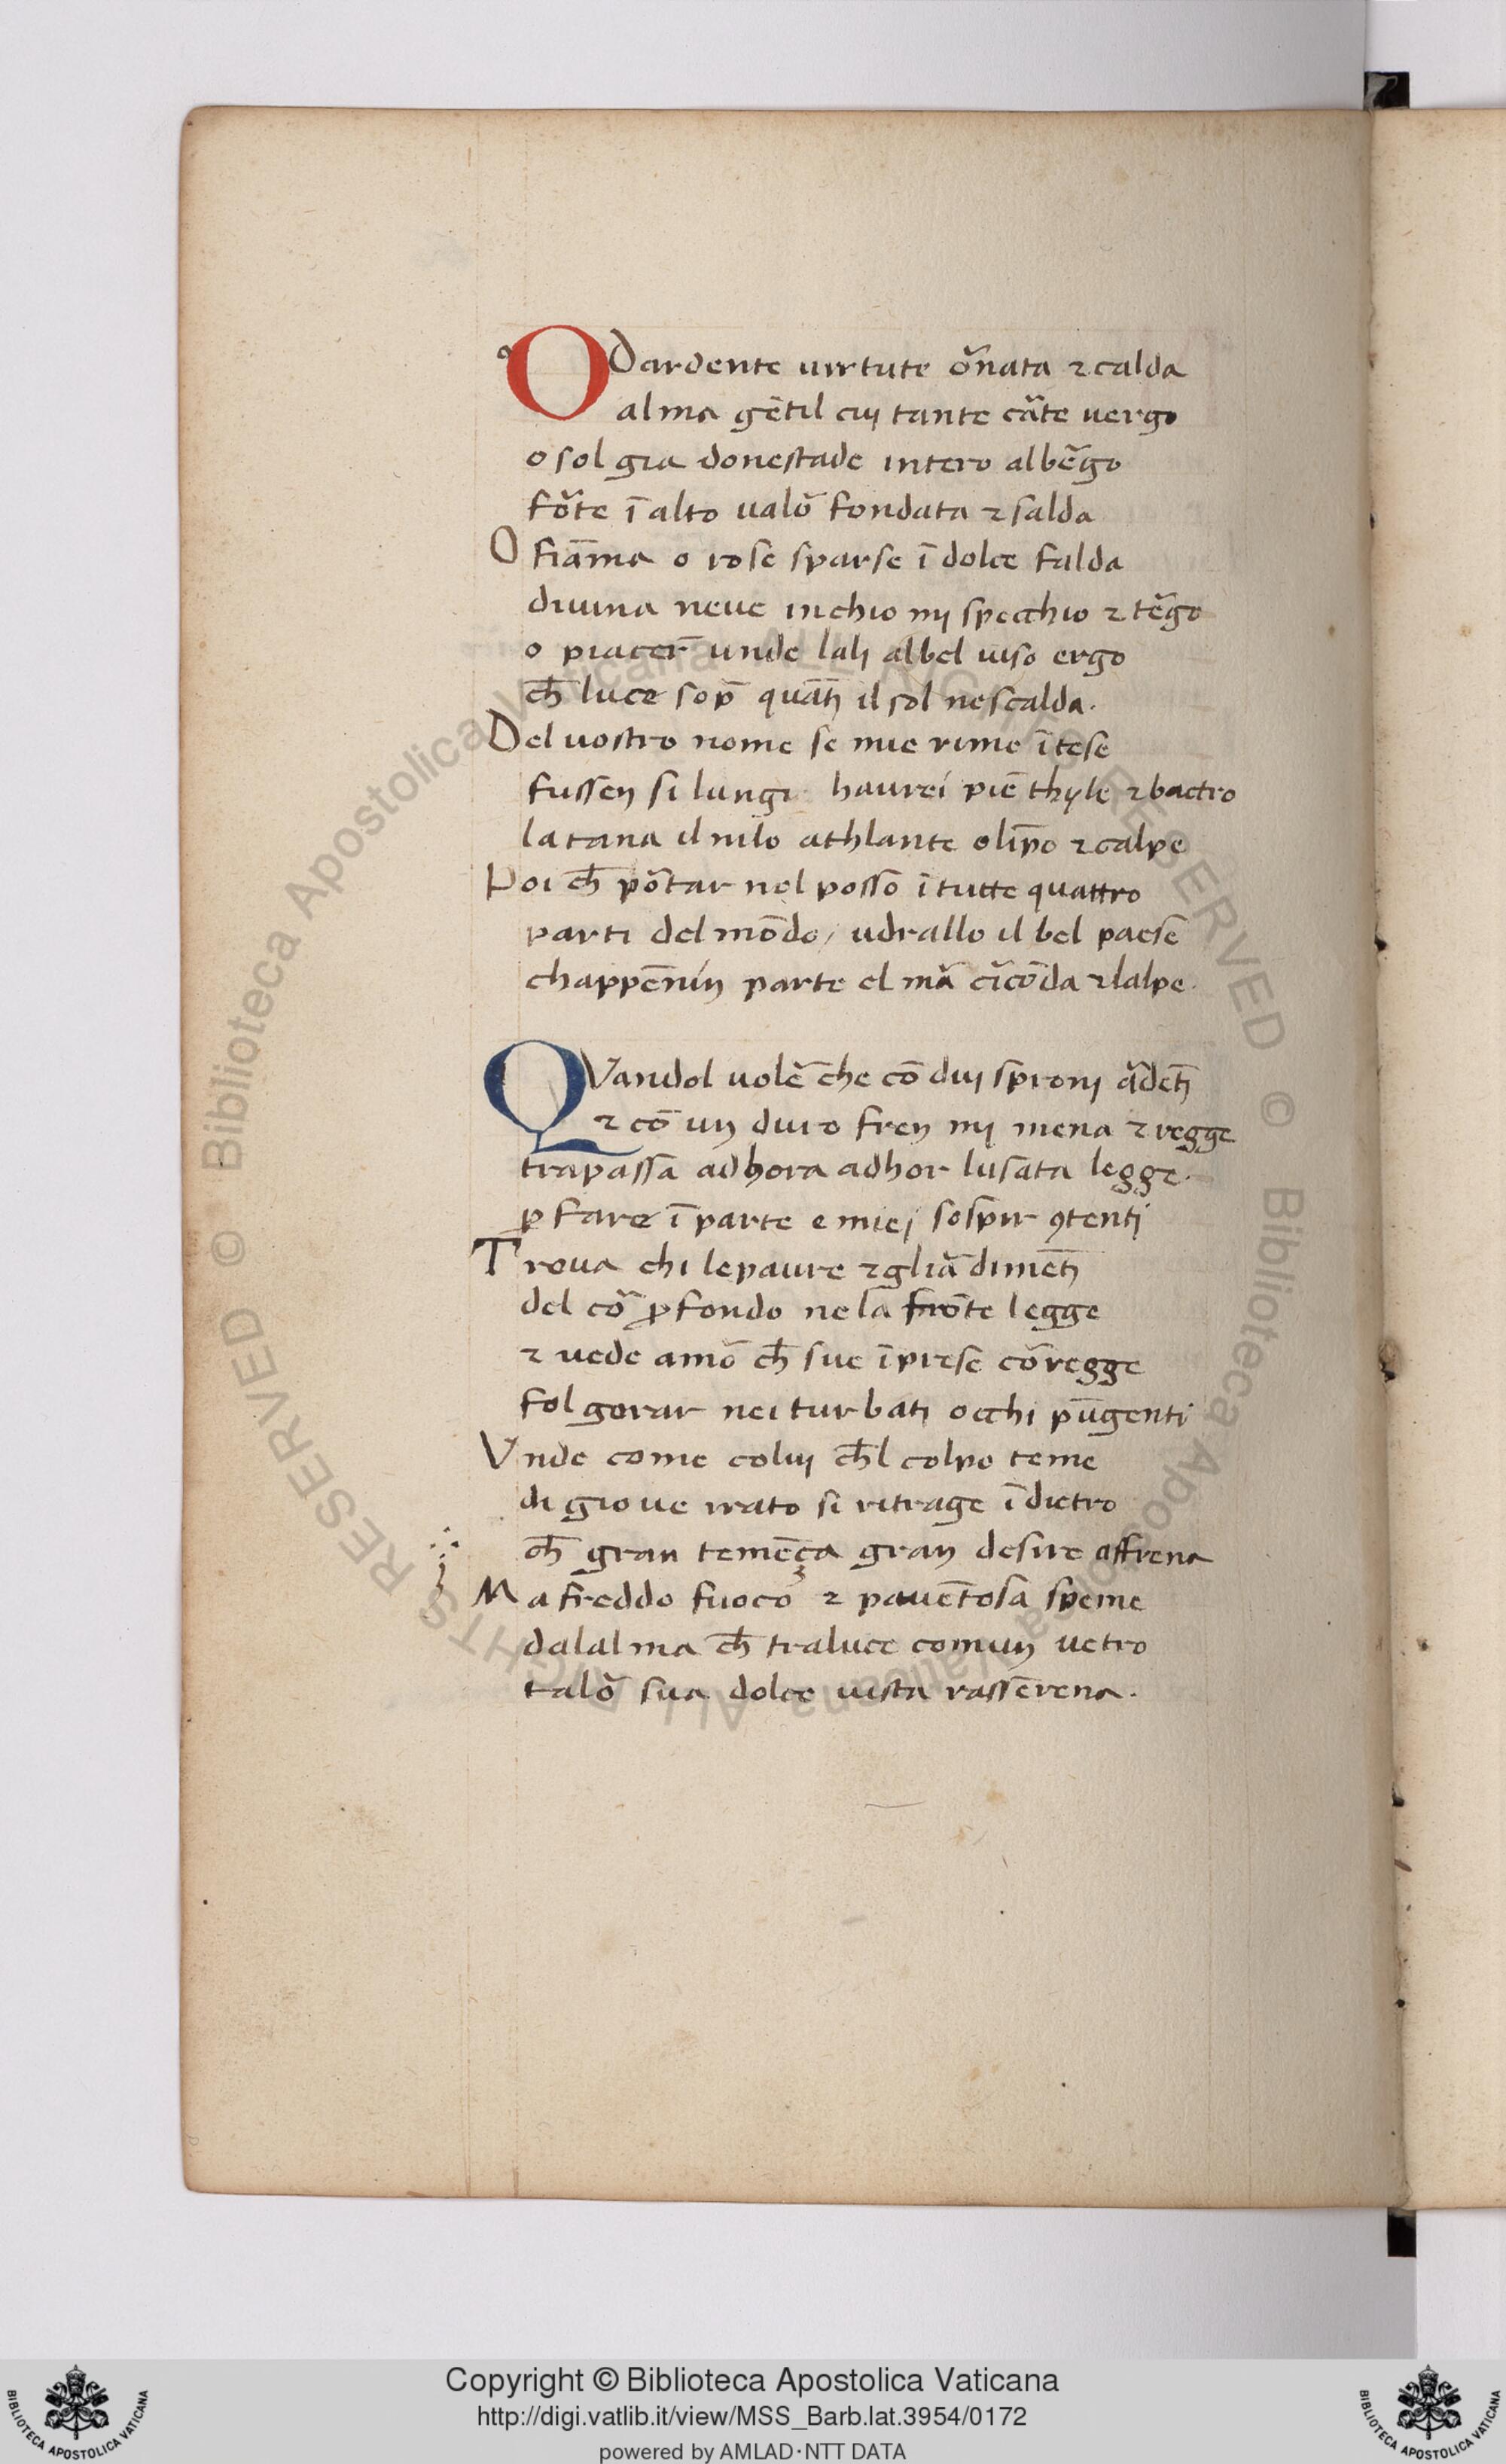 O Dardente uirtute or̃nata ⁊ calda
alma gẽtil cuj tante cãte uergo
o sol gia donestade intero albẽgo
fõte ĩ alto ualõ fondata ⁊ salda
O fiãma o rose sparse ĩ dolce falda
diuina neue inchio mj specchio ⁊ tẽgo
o piacer̃ unde lalj albel uiso ergo
ch̃ luce sop̃ quãtj il sol nescalda.
Del uostro nome se mie rime ĩtese
fussen si lungi haurei piẽ thyle ⁊ bactro
la tana il nilo athlante olĩpo ⁊ calpe
Poi ch̃ põtar nol posso ĩ tutte quattro
parti del mõdo / udrallo il bel paese
chappẽnin parte el mã cĩcõda ⁊ lalpe.
QVandol uolẽ che cõ duj sproni ãdẽtj
⁊ cõ un duro fren mj mena ⁊ regge
trapassa adhora adhor lusata legge.
ꝑ fare ĩ parte e miej sospir ꝯtenti
Troua chi le paure ⁊ gliã dimẽtj
del cõ ꝓfondo nela frõte legge
⁊ uede amõ ch̃ sue ĩprese cõregge
folgorar nei turbatj occhi pũgenti
Vnde come coluj ch̃l colpo teme
di gioue irato si ritrage ĩdietro
ch̃ gran temẽça gran desire affrena
Ma freddo fuoco ⁊ pauẽtosa speme
dalalma ch̃ traluce comun uetro
talõ sua dolce uista rassẽrena.
Copyright © Biblioteca Apostolica Vaticana
http://digi.vatlib.it/view/MSS_Barb.lat.3954/0172
powered by AMLAD·NTT DATA
BIBLIOTECA APOSTOLICA VATICANA
BIBLIOTECA APOSTOLICA VATICANA
© Biblioteca Apostolica Vaticana ALL RIGHTS RESERVED © Biblioteca Apostolica Vaticana ALL RIGHTS RESERVED